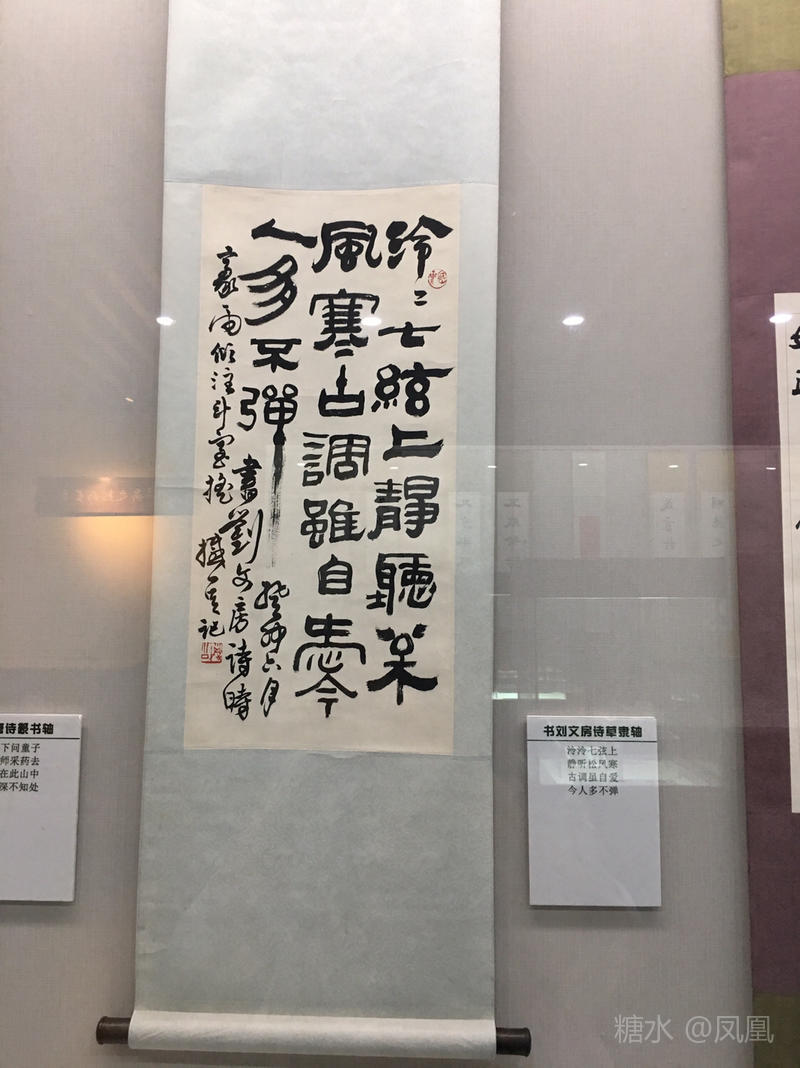 泠〻七絃上靜聽枀
風寒古調雖自㤅今
人多不彈
書劉文房詩時
癸卯六月
豪雨傾注斗室搖撼
记
诗篆书轴
下问童子
师采药去
在此山中
深不知处
书刘文房诗草隶轴
泠泠七弦上
静听松风寒
古调虽自爱
今人多不弹
糖水 @凤凰